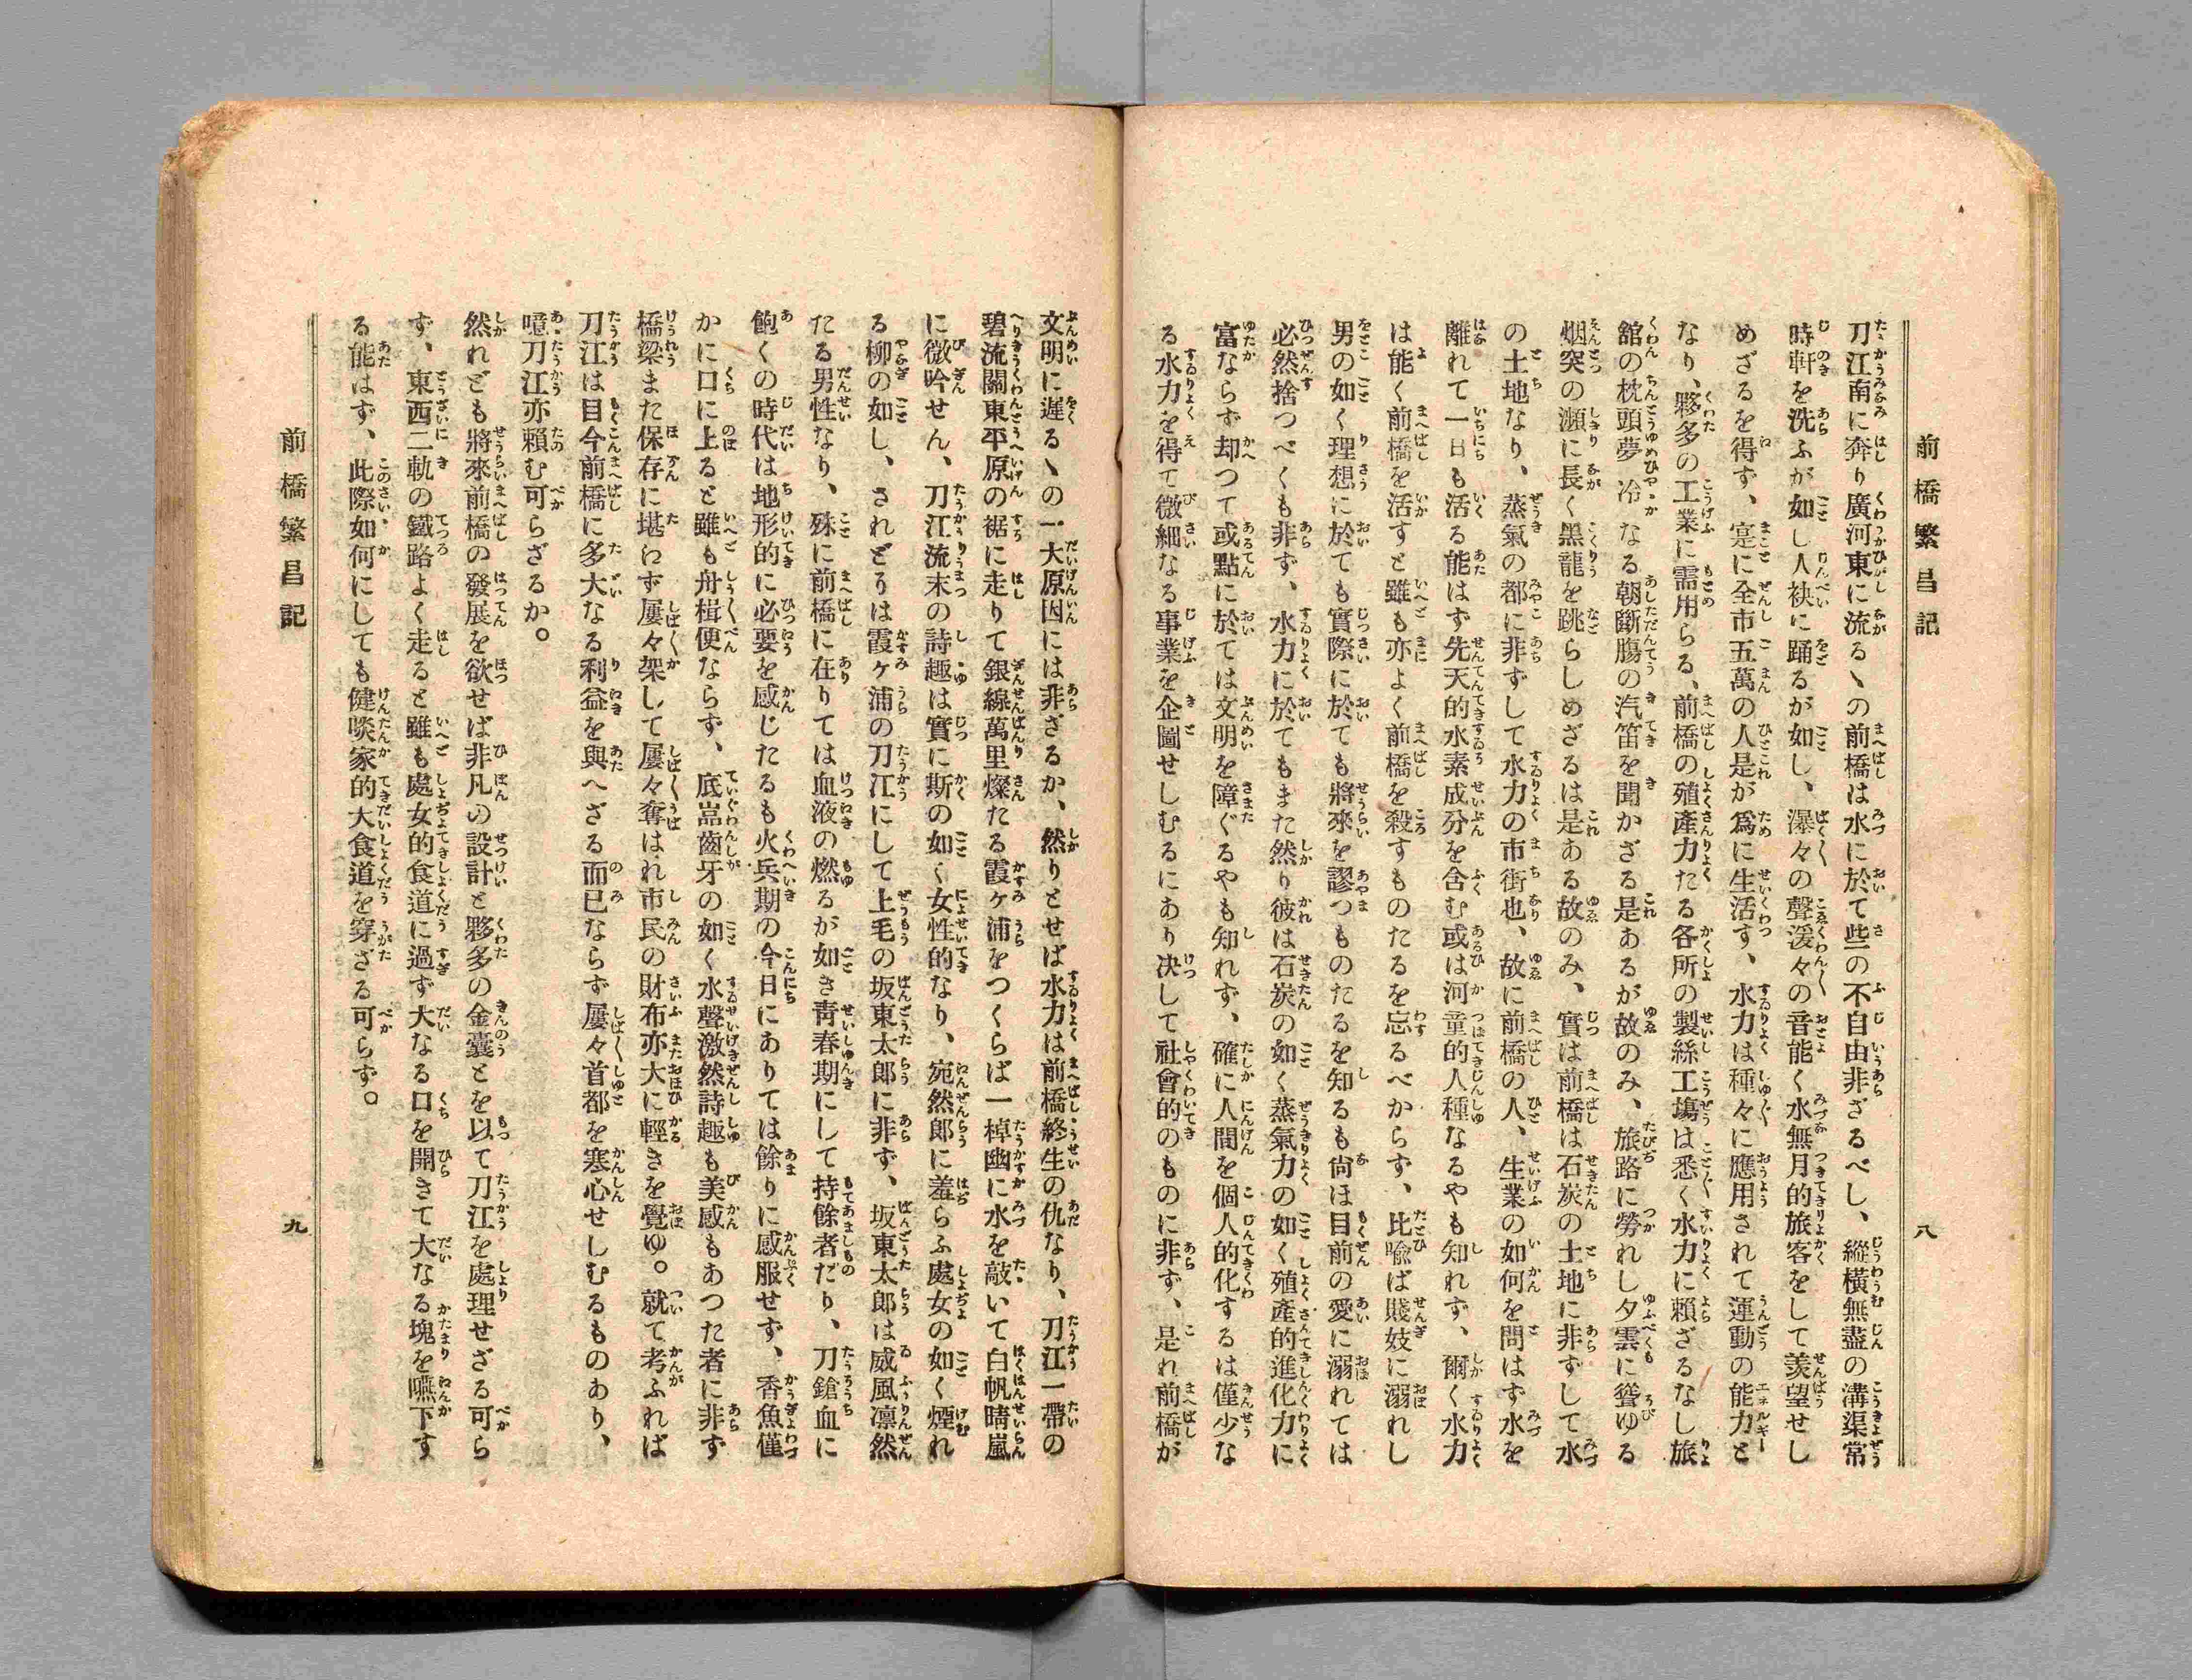 前橋繁昌記
八
刀江南に奔り廣河東に流るゝの前橋は水に於て些の不自由非ざるべし、縱橫無盡の溝渠常
時軒を洗ふが如し人袂に踊るが如し、瀑々の聲湲々の音能く水無月的旅客をして羨望せし
めざるを得ず、寔に全市五萬の人是が爲に生活す、水力は種々に應用されて運動の能力と
なり、夥多の工業に需用らる、前橋の殖產力たる各所の製絲工塲は悉く水力に賴ざるなし旅
舘の枕頭夢冷なる朝斷膓の汽笛を聞かざる是あるが故のみ、旅路に勞れし夕雲に聳ゆる
烟突の瀕に長く黑龍を跳らしめざるは是ある故のみ、實は前橋は石炭の土地に非ずして水
の土地なり、蒸氣の都に非ずして水力の市街也、故に前橋の人、生業の如何を問はず水を
離れて一日も活る能はず先天的水素成分を含む或は河童的人種なるやも知れず、爾く水力
は能く前橋を活すと雖も亦よく前橋を殺すものたるを忘るべからず、比喩ば賤妓に溺れし
男の如く理想に於ても實際に於ても將來を謬つものたるを知るも尙ほ目前の愛に溺れては
必然捨つべくも非ず、水力に於てもまた然り彼は石炭の如く蒸氣力の如く殖產的進化力に
富ならず却つて或點に於ては文明を障ぐるやも知れず、確に人間を個人的化するは僅少な
る水力を得て微細なる事業を企圖せしむるにあり决して社會的のものに非ず、是れ前橋が
文明に遲るゝの一大原因には非ざるか、然りとせば水力は前橋終生の仇なり、刀江一帶の
碧流關東平原の裾に走りて銀線萬里燦たる霞ヶ浦をつくらば一棹幽に水を敲いて白帆晴嵐
に微吟せん、刀江流末の詩趣は實に斯の如く女性的なり、宛然郎に羞らふ處女の如く煙れ
る柳の如し、されどりは霞ヶ浦の刀江にして上毛の坂東太郎に非ず、坂東太郎は威風凛然
たる男性なり、殊に前橋に在りては血液の燃るが如き靑春期にして持餘者だり、刀鎗血に
飽くの時代は地形的に必要を感じたるも火兵期の今日にありては餘りに感服せず、香魚僅
かに口に上ると雖も舟楫便ならず、底嵓齒牙の如く水聲激然詩趣も美感もあつた者に非ず
橋梁また保存に堪わず屢々架して屢々奪はれ市民の財布亦大に輕きを覺ゆ。就て考ふれば
刀江は目今前橋に多大なる利益を與へざる而已ならず屢々首都を寒心せしむるものあり、
噫刀江亦賴む可らざるか。
然れども將來前橋の發展を欲せば非凡の設計と夥多の金囊とを以て刀江を處理せざる可ら
ず、東西二軌の鐵路よく走ると雖も處女的食道に過ず大なる口を開きて大なる塊を嚥下す
る能はず、此際如何にしても健啖家的大食道を穿ざる可らず。
前橋繁昌記
九